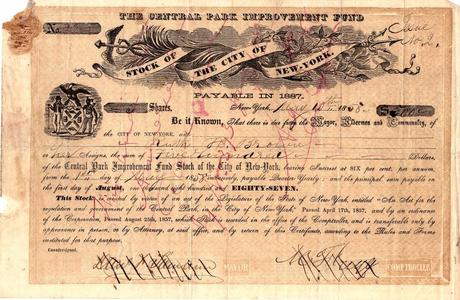 THE CENTRAL PARK IMPROVEMENT FUND
No.
STOCK OF THE CITY OF NEW-YORK.
PAYABLE IN 1887.
Shares. New-York,
Be it Known, That there is due from the Mayor, Aldermen and Commonalty, of
the CITY OF NEW-YORK, unto
or Assigns, the sum of Five hundred Dollars,
of the Central Park Improvement Fund Stock of the City of New-York, bearing Interest at SIX per cent, per annum,
from the payable Quarter Yearly; and the principal sum payable on
the first day of August, one thousand eight hundred and EIGHTY-SEVEN.
This Stock is created by virtue of an act of the Legislature of the State of New-York, entitled "An Act for the
regulation and government of the Central Park, in the City of New-York," Passed April 17th, 1857, and by an ordinance
of the Corporation, Passed August 25th, 1857, which Stock is recorded in the office of the Comptroller, and is transferable only by
appearance in person, or by Attorney, at said office, and by return of this Certificate, according to the Rules and Forms
instituted for that purpose.
Countersigned.
MAYOR COMPTROLLER